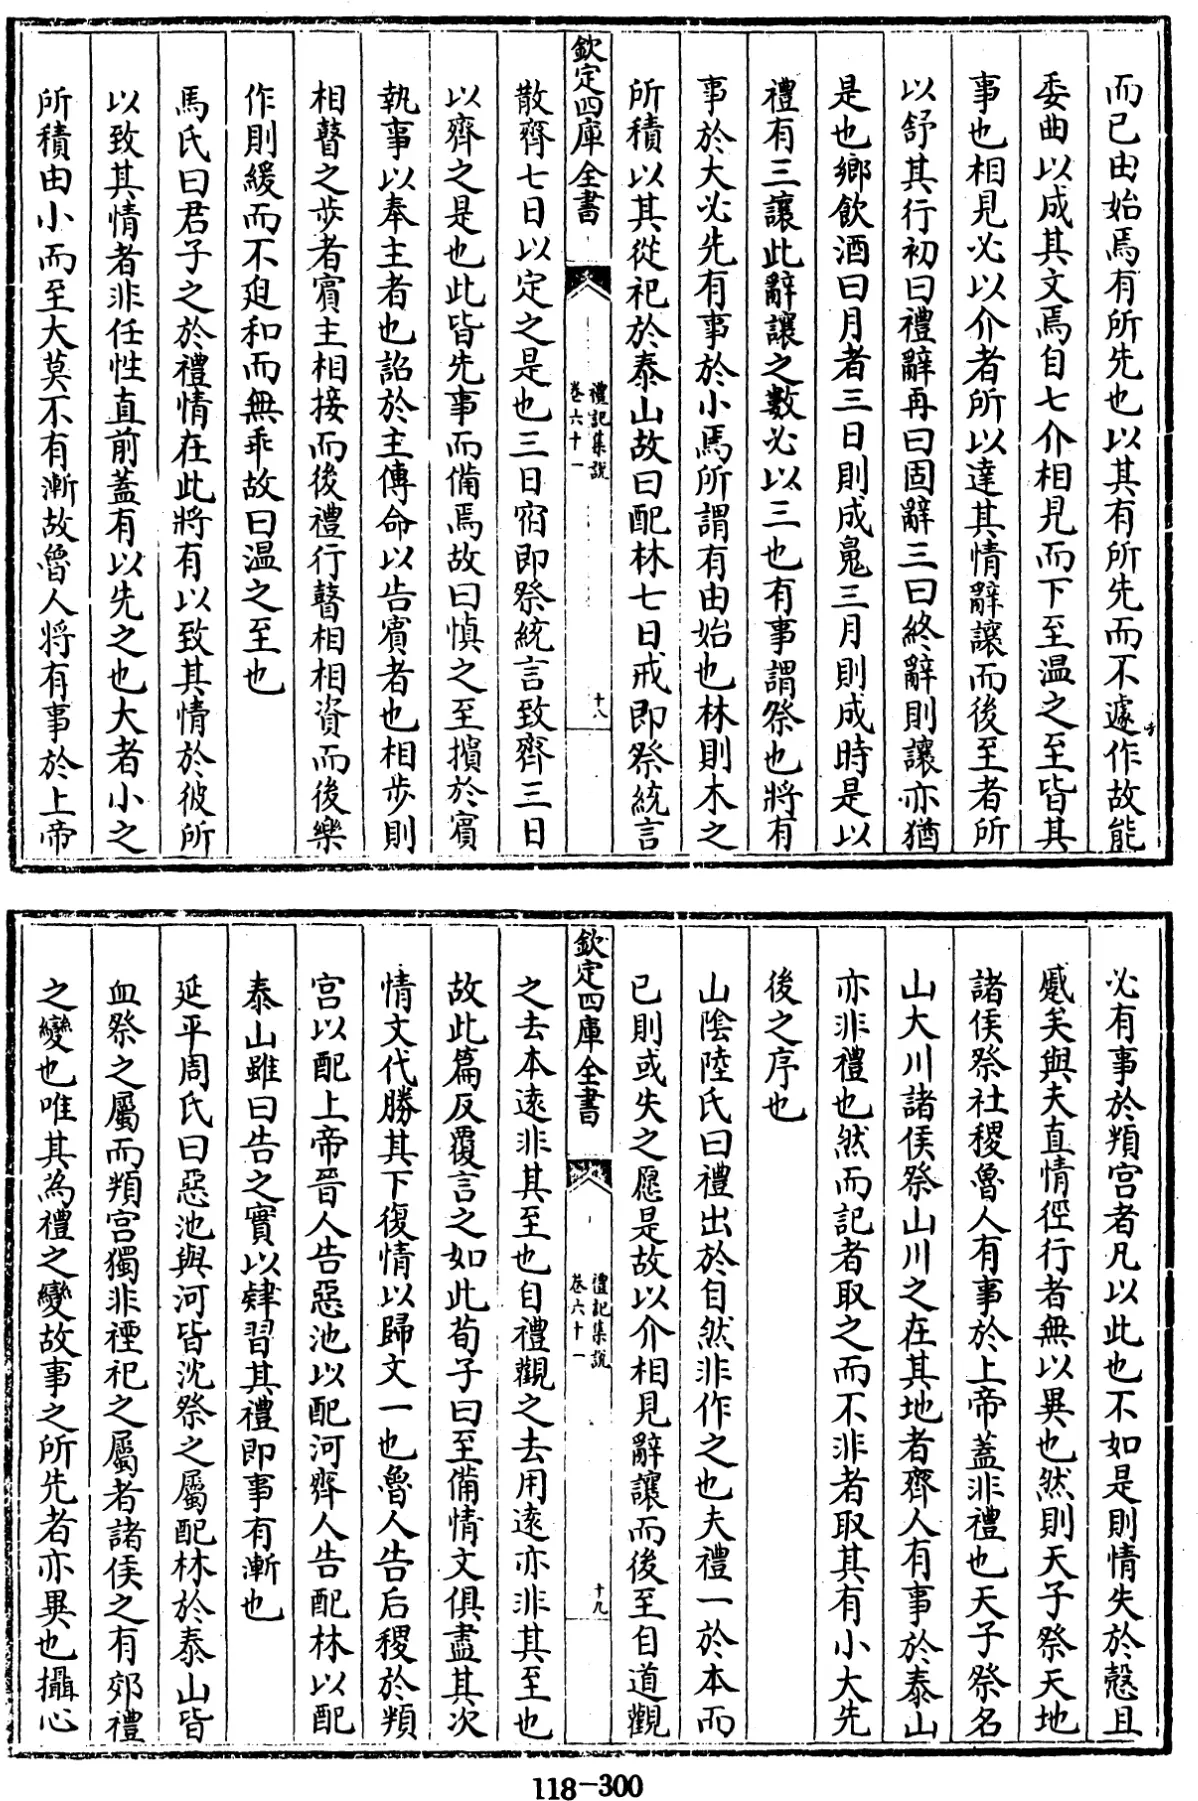 而已由始焉有所先也以其有所先而不遽作故能
委曲以成其文焉自七介相見而下至温之至皆其
事也相見必以介者所以達其情辭讓而後至者所
以舒其行初曰禮辭再曰固辭三曰終辭則讓亦猶
是也鄉飲酒曰月者三日則成魄三月則成時是以
禮有三讓此辭讓之數必以三也有事謂祭也將有
事於大必先有事於小焉所謂有由始也林則木之
所積以其從祀於泰山故曰配林七日戒即祭統言
欽定四庫全書
禮記集說
卷六十一
十八
散齊七日以定之是也三日宿即祭統言致齊三日
以齊之是也此皆先事而備焉故曰慎之至擯於賓
執事以奉主者也詔於主傳命以告賓者也相步則
相瞽之步者賓主相接而後禮行瞽相相資而後樂
作則緩而不迫和而無乖故曰温之至也
馬氏曰君子之於禮情在此將有以致其情於彼所
以致其情者非任性直前蓋有以先之也大者小之
所積由小而至大莫不有漸故魯人將有事於上帝
必有事於頖宫者凡以此也不如是則情失於慤且
蹙矣與夫直情徑行者無以異也然則天子祭天地
諸侯祭社稷魯人有事於上帝蓋非禮也天子祭名
山大川諸侯祭山川之在其地者齊人有事於泰山
亦非禮也然而記者取之而不非者取其有小大先
後之序也
山陰陸氏曰禮出於自然非作之也夫禮一於本而
已則或失之愿是故以介相見辭讓而後至自道觀
欽定四庫全書
禮記集說
卷六十一
十九
之去本逺非其至也自禮觀之去用逺亦非其至也
故此篇反覆言之如此荀子曰至備情文俱盡其次
情文代勝其下復情以歸文一也魯人告后稷於頖
宫以配上帝晉人告惡池以配河齊人告配林以配
泰山雖曰告之實以肄習其禮即事有漸也
延平周氏曰惡池與河皆沈祭之屬配林於泰山皆
血祭之屬而頖宫獨非禋祀之屬者諸侯之有郊禮
之變也唯其為禮之變故事之所先者亦異也攝心
118-300